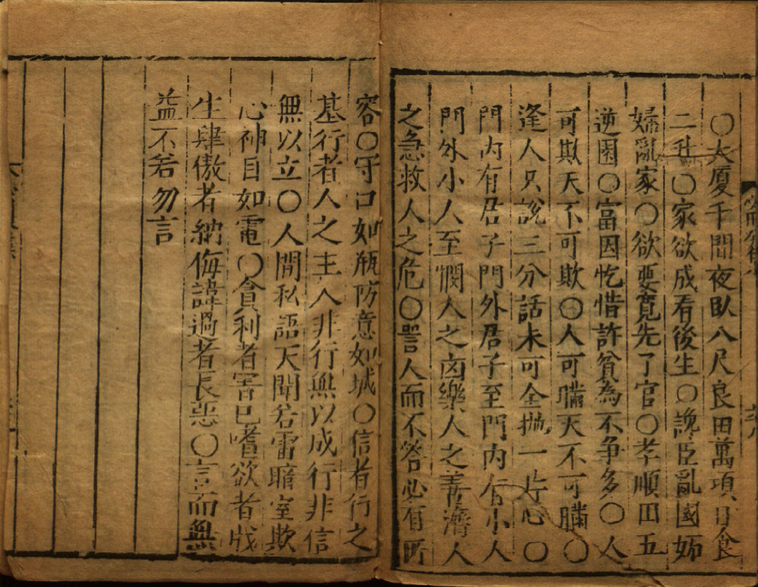 〇大廈千間夜臥八尺良田萬項日食
二升〇家欲成看後生〇讒臣亂國妬
婦亂家〇欲要寬先了官〇孝順田五
逆困〇富因忔惜許貧為不爭多〇人
可欺天不可欺〇人可瞞天不可瞞〇
逢人只說三分話未可全抛一片心〇
門內有君子門外君子至門內有小人
門外小人至憫人之凶樂人之善濟人
之急救人之危〇詈人而不答必有所
容〇守口如瓶防意如城〇信者行之
基行者人之主人非行無以成行非信
無以立〇人間私語天聞若雷暗室欺
心神目如電〇貪利者害己嗜欲者戕
生肆傲者納侮諱過者長惡〇言而無
益不若勿言